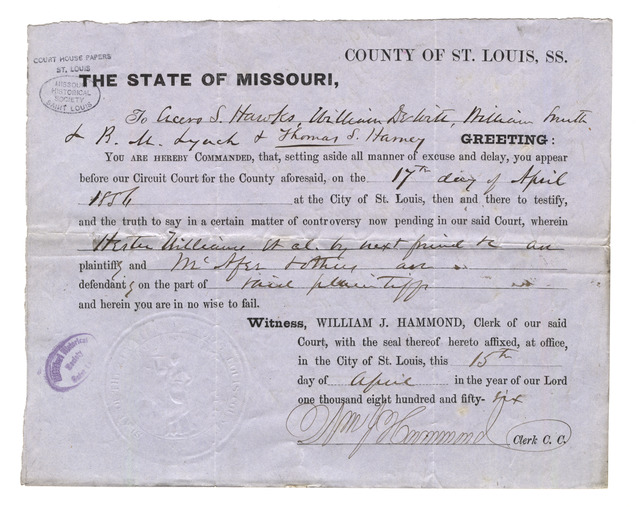 COUNTY OF ST. LOUIS, SS.
COURT HOUSE PAPERS
ST. LOUIS
MISSOURI
HISTORICAL
SOCIETY
SAINT LOUIS
THE STATE OF MISSOURI,
To Cicero S. Hawks, William DeWitt, William Smith
& B. M. Lynch & Thomas S. Harney GREETING:
YOU ARE HEREBY COMMANDED, that, setting aside all manner of excuse and delay, you appear
before our Circuit Court for the County aforesaid, on the 17th day of April
1856 at the City of St. Louis, then and there to testify,
and the truth to say in a certain matter of controversy now pending in our said Court, wherein
Hester Williams et al. by next friend &c are
plaintiffs and McAfee & others are
defendants on the part of said plaintiffs
and herein you are in no wise to fail.
Witness, WILLIAM J. HAMMOND, Clerk of our said
Court, with the seal thereof hereto affixed, at office,
in the City of St. Louis, this 15th
day of April in the year of our Lord
one thousand eight hundred and fifty-six
Wm J Hammond Clerk C. C.
Missouri Historical
Society